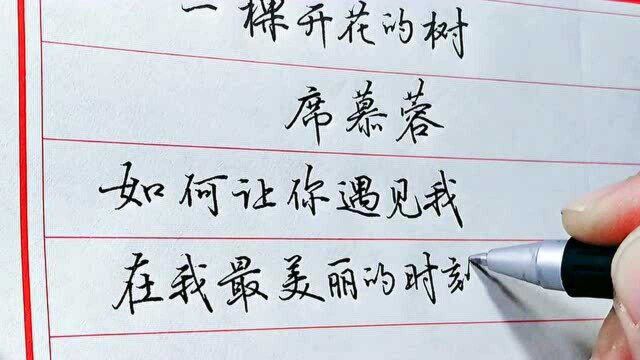 一棵开花的树
席慕蓉
如何让你遇见我
在我最美丽的时刻